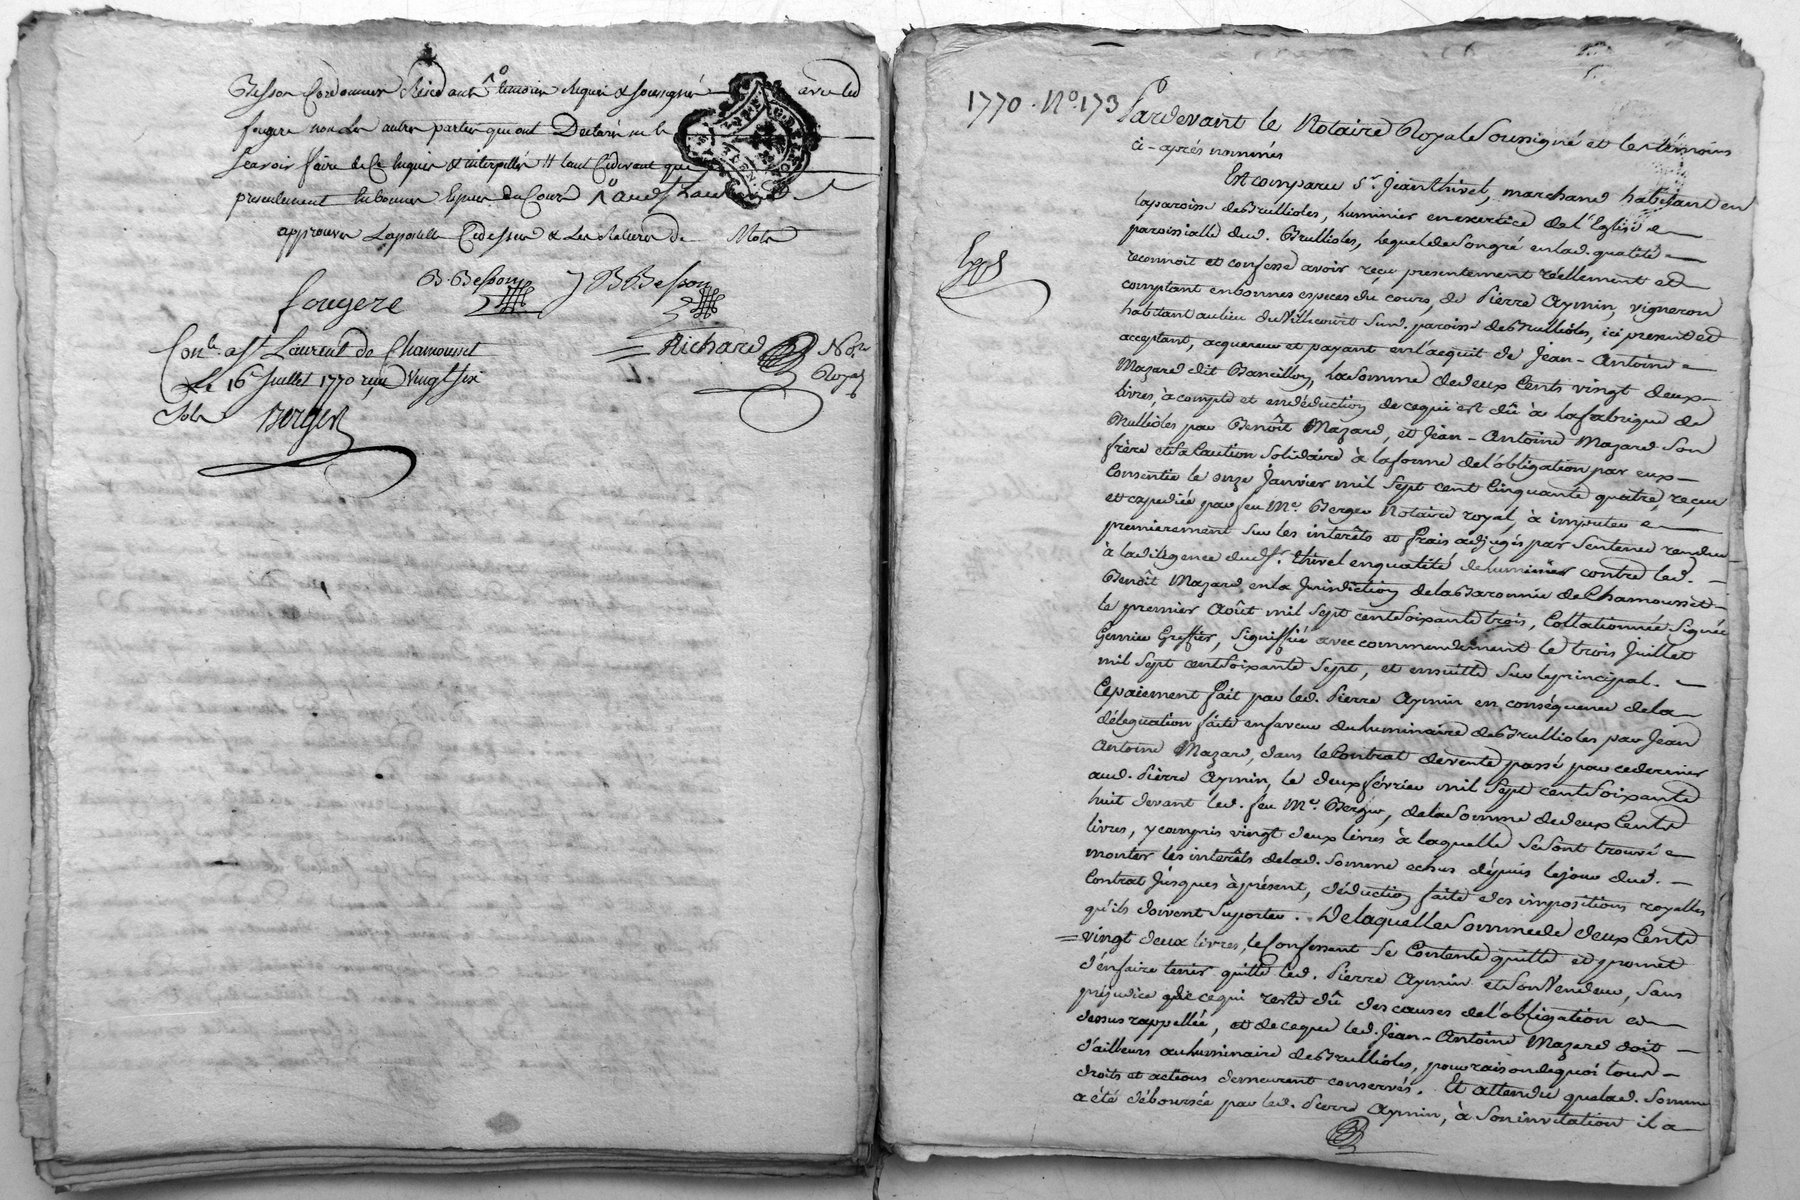 Besson Cordonnier temoins requis & soussignés avec led
fougere non les autres parties qui ont Declaré ne le
sçavoir faire de ce enquis & interpellés tant cidevant que
presentement en bonnes especes du Cours
approuvé
B. Besson J B Besson
fougere
Richard No.re Royal
Con.le a S.t Laurent de Chamousset
Le 16 Juillet 1770 reçu Vingt six
sols Berger
1770. N.o 173
Pardevant le Notaire Royal Soussigné et les témoins
ci-après nommés
Est comparu S.r Jean thivel, marchand habitant en
la paroisse de Brullioles, luminier en exertice de l'Eglise
paroissialle dud. Brullioles, lequel de son gré en lad. qualité
reconnoit et confesse avoir reçu presentement réellement et
comptant en bonnes especes du cours, de Pierre Aymin, vigneron
habitant au lieu du Villecourt Sud. paroisse de Brullioles, ici present et
acceptant, acquereur et payant en l'acquit de Jean-Antoine
Mazard dit Bancillon, la somme de deux Cents vingt deux
livres, à compte et en déduction de ce qui est dû à la fabrique de
Brullioles par Benoît Mazard, et Jean-Antoine Mazard son
frère et sa Caution solidaire à la forme de l'obligation par eux
Consentie le onze Janvier mil Sept cent Cinquante quatre, reçue
et expediée par feu M.e Berger Notaire royal, à imputer
premierement sur les interêts et frais adjugés par Sentence rendue
à la diligence dud. S.r thivel en qualité de luminier contre led.
Benoît Mazard en la Jurisdiction de la Baronnie de Chamousset
le premier Août mil Sept cent Soixante trois, Collationnée Signée
Greffier, Signiffié avec commendement le trois Juillet
mil Sept cent Soixante Sept, et ensuitte sur le principal.
Ce paiement fait par led. Pierre Aymin en conséquence de la
délégation faite en faveur du luminaire de Brullioles par Jean
Antoine Mazard, dans le Contrat de vente passé par ce dernier
aud. Pierre Aymin, le deux février mil Sept cent Soixante
huit devant led. feu M.e Berger, de la Somme de deux Cents
livres, y compris vingt deux livres à laquelle se sont trouvé
monter les interêts de lad. Somme echus dépuis le jour dud.
Contrat Jusques àprésent, déduction faite des impositions royalles
qu'ils doivent Suporter. De laquelle Somme de deux Cents
vingt deux livres, le Confessant se Contente quitte et promet
d'en faire tenir quitte led. Pierre Aymin et Son Vendeur, Sans
préjudice de ce qui reste dû des causes de l'obligation ci
dessus rappellée, et de ce que led. Jean-Antoine Mazard doit
d'ailleurs au luminaire de Brullioles, pour raison de quoi tous
droits et actions demeurent conservés. Et attendu que lad. Somme
a été déboursée par led. Pierre Aymin, à Son invitation il a